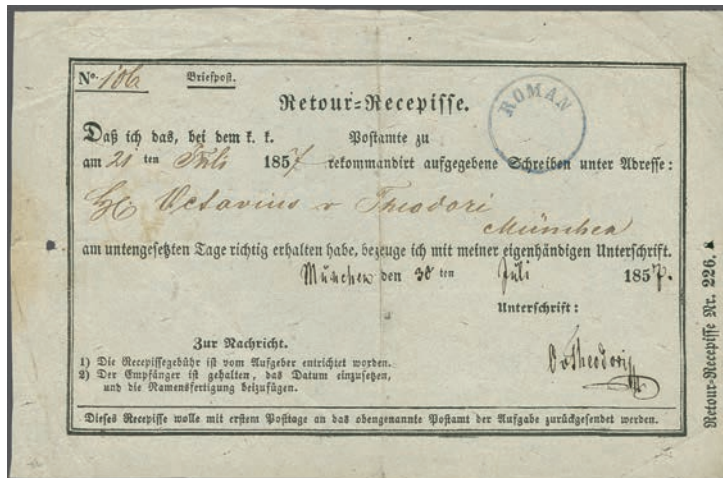 No. 106 Briefpost.
Retour-Recepisse.
ROMAN
Daß ich das, bei dem k. k. Postamte zu
am 21 ten Juli 1857 rekommandirt aufgegebene Schreiben unter Adresse:
Octavius v Theodori
München
am untengesetzten Tage richtig erhalten habe, bezeuge ich mit meiner eigenhändigen Unterschrift.
München den 30 ten Juli 1857.
Unterschrift:
OvTheodori
Zur Nachricht.
1) Die Recepissegebühr ist vom Aufgeber entrichtet worden.
2) Der Empfänger ist gehalten, das Datum einzusetzen,
und die Namensfertigung beizufügen.
Dieses Recepisse wolle mit erstem Posttage an das obengenannte Postamt der Aufgabe zurückgesendet werden.
Retour-Recepisse Nr. 226.